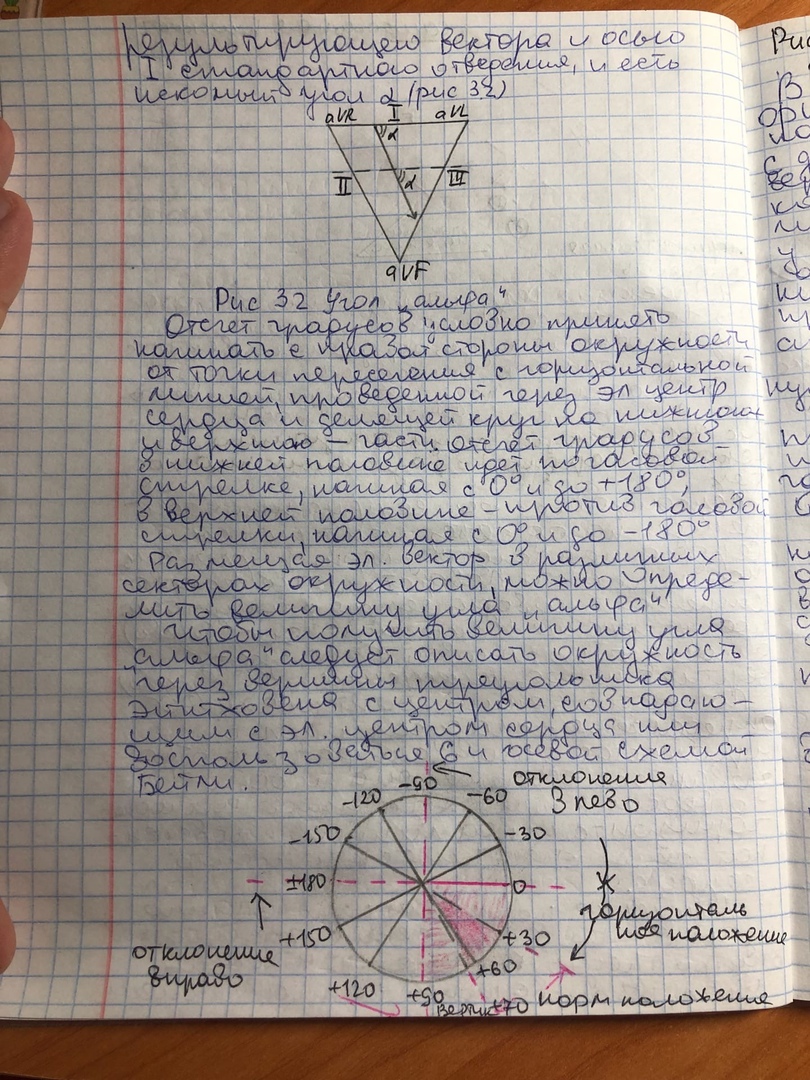 результирующего вектора и осью
I стандартного отведения, и есть
искомый угол α (рис 32)
aVR I aVL
α
II α III
aVF
Рис 32 Угол „альфа"
Отсчет градусов условно принято
начинать с правой стороны окружности
от точки пересечения с горизонтальной
линией, проведенной через эл центр
сердца и делящей круг на нижнюю
и верхнюю – части. отсчет градусов
в нижней половине идет по часовой
стрелке, начиная с 0° и до +180°,
в верхней половине – против часовой
стрелки, начиная с 0° и до -180°
Размещая эл. вектор в различных
секторах окружности, можно опреде-
лить величину угла „альфа"
Чтобы получить величину угла
„альфа" следует описать окружность
через вершины треугольника
Эйтховена с центром, совпадаю-
щим с эл. центром сердца или
воспользоваться 6 и осевой схемой
Бейли.
отклонение
влево
-90
-120 -60
-150 -30
±180 0
горизонталь
ное положение
+150 +30
отклонение
вправо
+60
+120 +90 +70
вертик норм положение
Рис
В